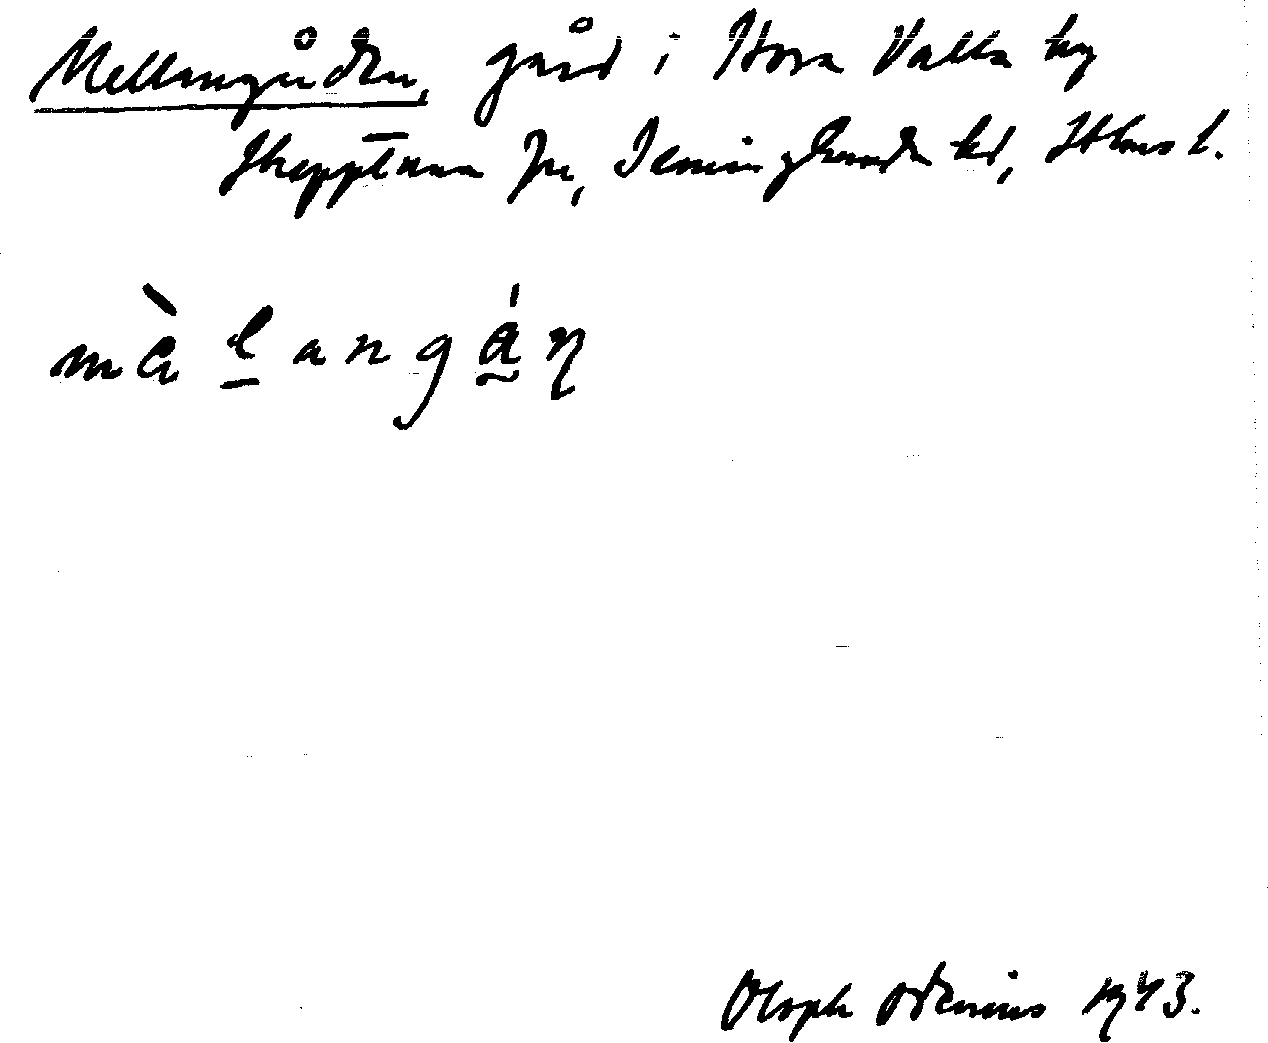 Mellangården, gård i Stora Valla by
Skepptuna sn, Seminghundra hd, Sthms l.
mà l a n g á n
Oloph Odenius 1943.